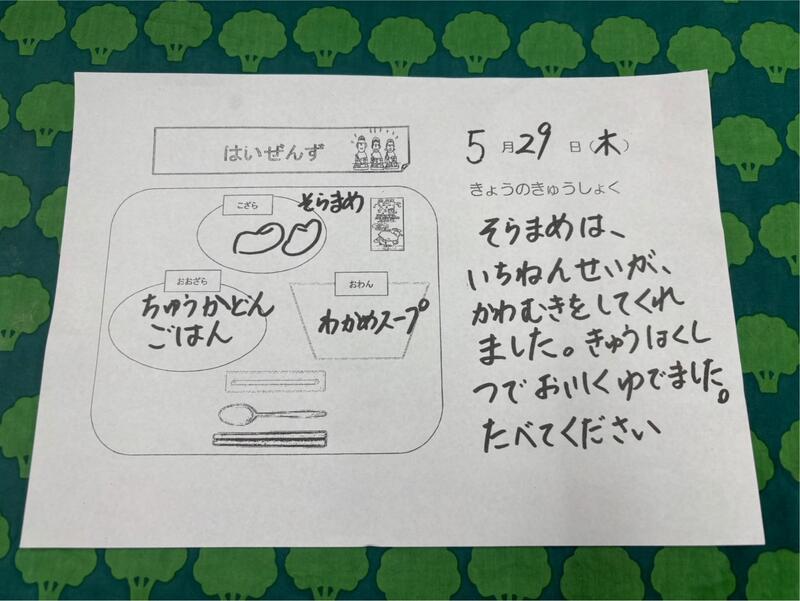 はいぜんず
こざら
そらまめ
おおざら
ちゅうかどん
ごはん
おわん
わかめスープ
5月29日(木)
きょうのきゅうしょく
そらまめは、
いちねんせいが、
かわむきをしてくれ
ました。きゅうほくし
つでおいしくゆでました。
たべてください